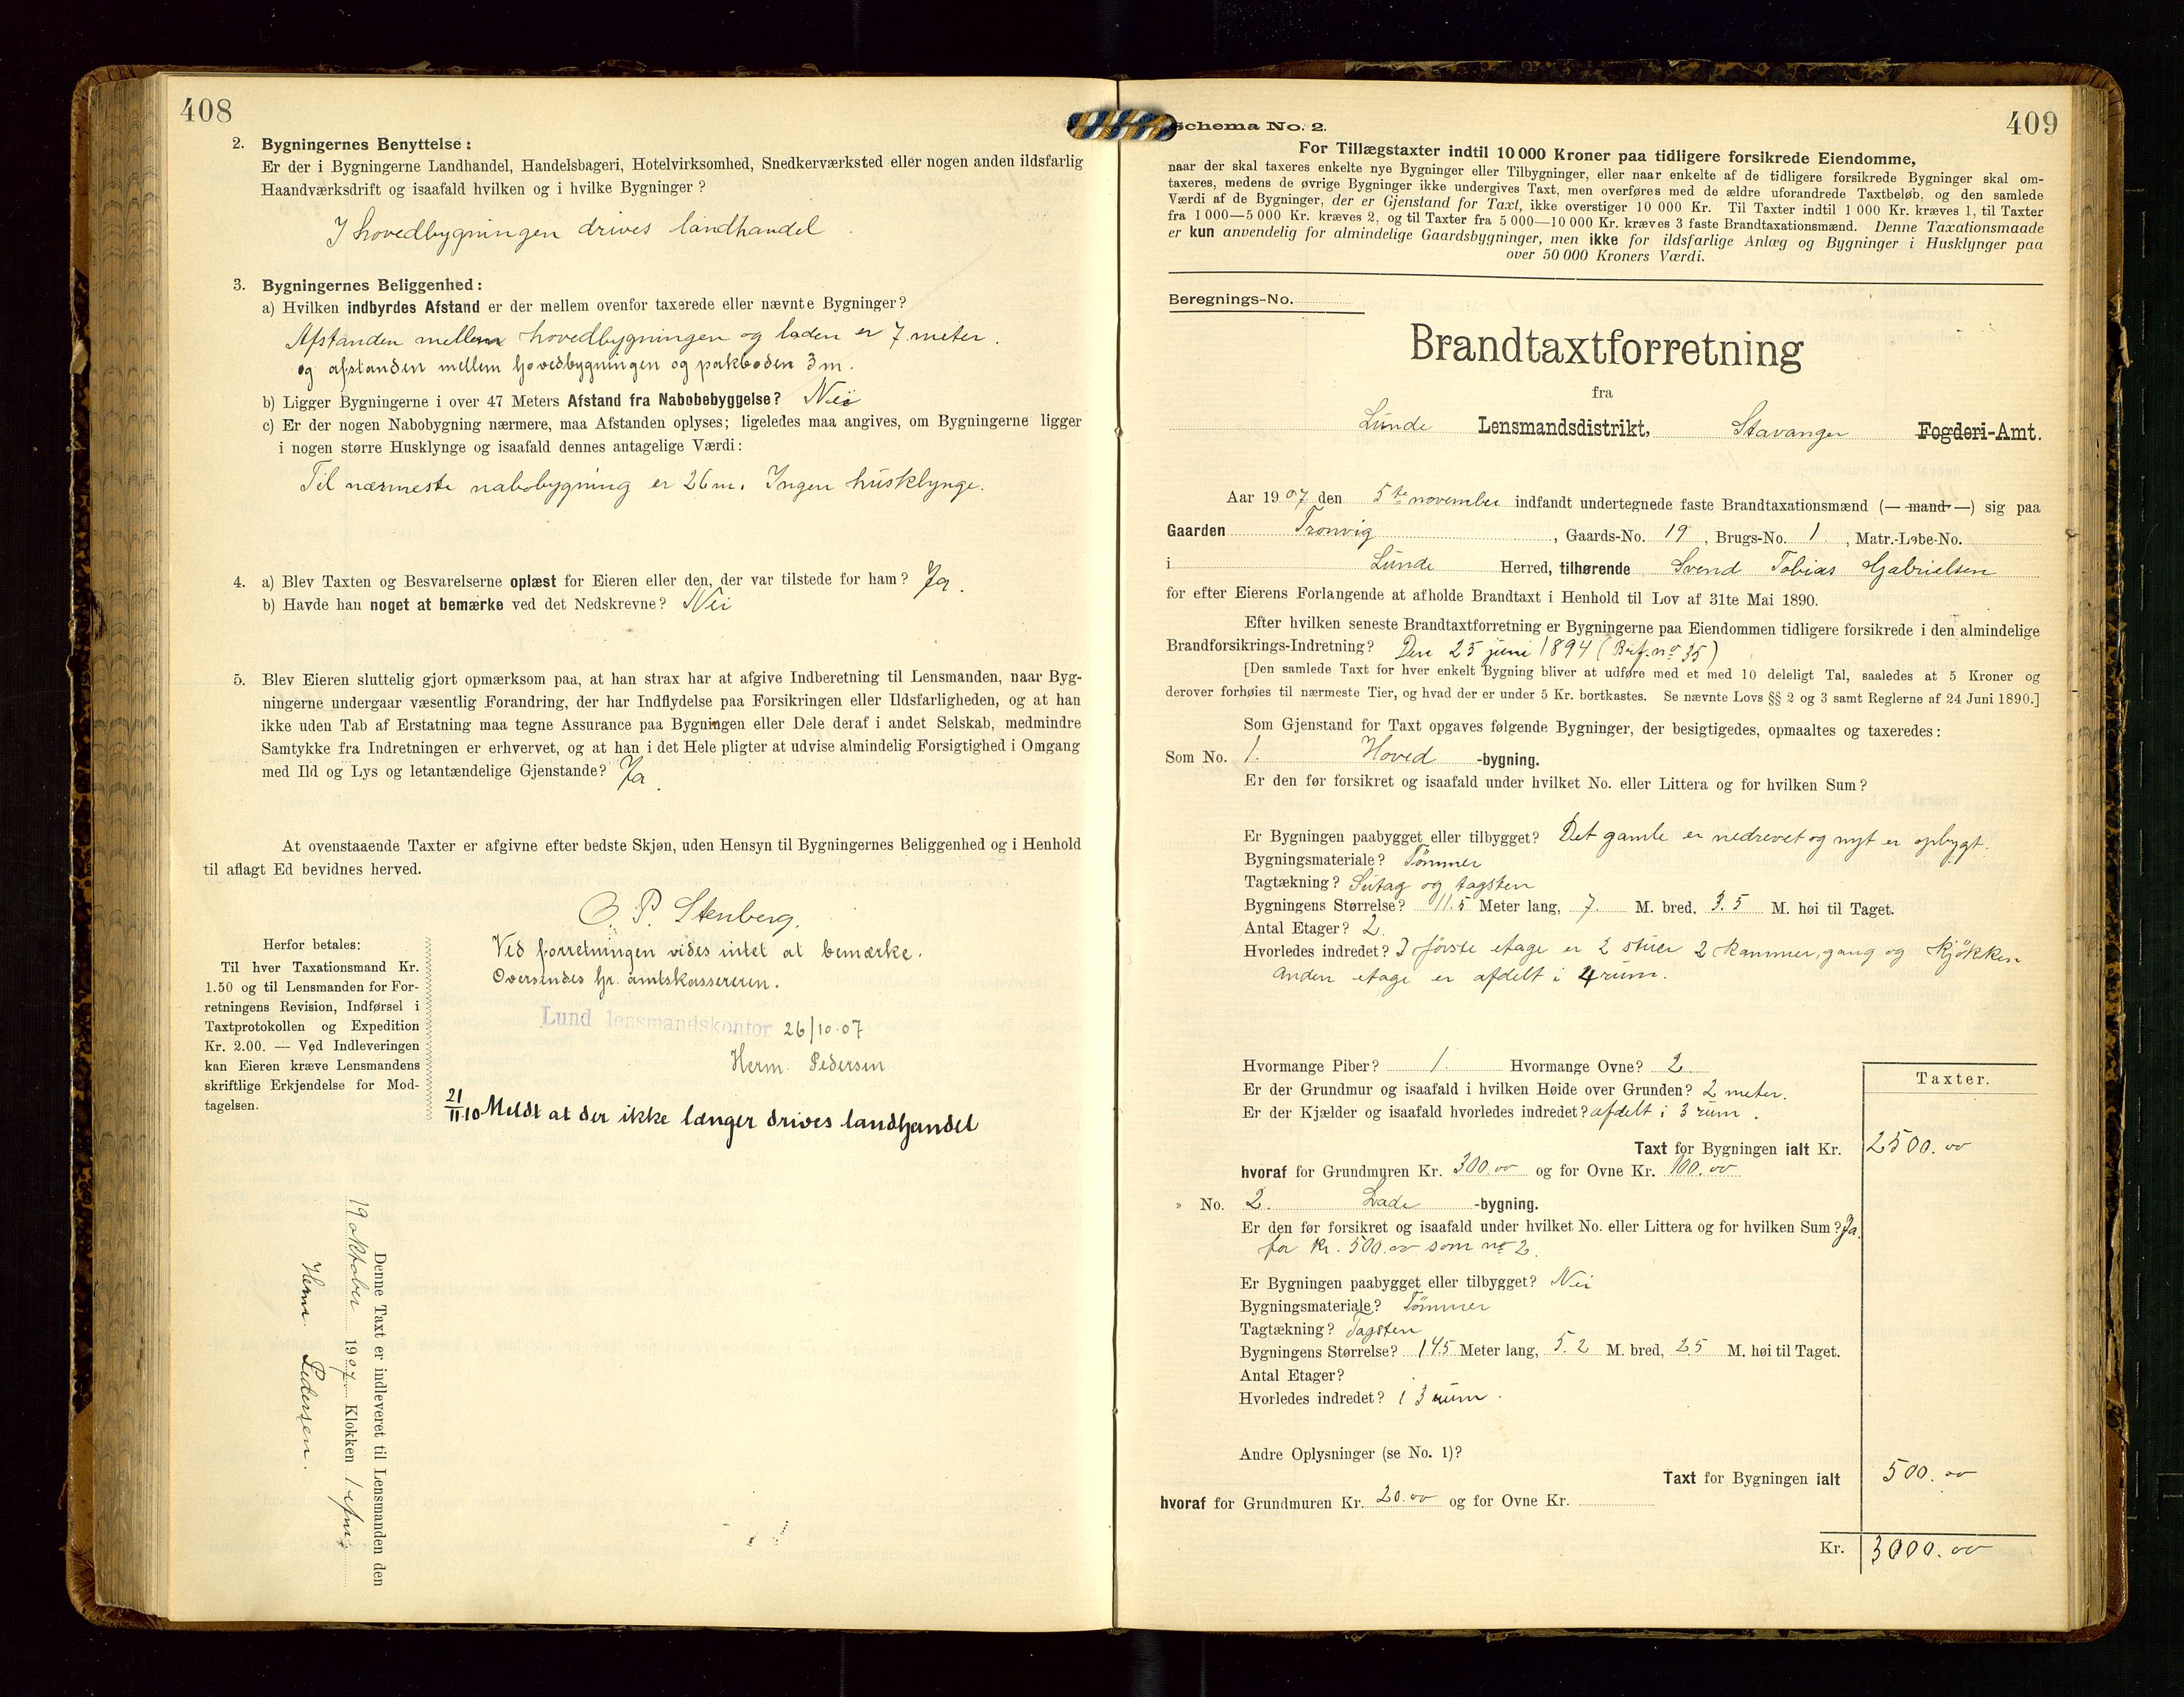 408
2. Bygningernes Benyttelse:
Er der i Bygningerne Landhandel, Handelsbageri, Hotelvirksomhed, Snedkerværksted eller nogen anden ildsfarlig
Haandværksdrift og isaafald hvilken og i hvilke Bygninger?
I hovedbygningen drives landhandel
3. Bygningernes Beliggenhed:
a) Hvilken indbyrdes Afstand er der mellem ovenfor taxerede eller nævnte Bygninger?
Afstanden mellem hovedbygningen og laden er 7 meter.
og afstanden mellem hovedbygningen og pakboden 3 m.
b) Ligger Bygningerne i over 47 Meters Afstand fra Nabobebyggelse? Nei
c) Er der nogen Nabobygning nærmere, maa Afstanden oplyses; ligeledes maa angives, om Bygningerne ligger
i nogen større Husklynge og isaafald dennes antagelige Værdi:
Til nærmeste nabobygning er 26 m. Ingen husklynge.
4. a) Blev Taxten og Besvarelserne oplæst for Eieren eller den, der var tilstede for ham? Ja.
b) Havde han noget at bemærke ved det Nedskrevne? Nei
5. Blev Eieren sluttelig gjort opmærksom paa, at han strax har at afgive Indberetning til Lensmanden, naar Byg-
ningerne undergaar væsentlig Forandring, der har Indflydelse paa Forsikringen eller Ildsfarligheden, og at han
ikke uden Tab af Erstatning maa tegne Assurance paa Bygningen eller Dele deraf i andet Selskab, medmindre
Samtykke fra Indretningen er erhvervet, og at han i det Hele pligter at udvise almindelig Forsigtighed i Omgang
med Ild og Lys og letantændelige Gjenstande? Ja.
At ovenstaaende Taxter er afgivne efter bedste Skjøn, uden Hensyn til Bygningernes Beliggenhed og i Henhold
til aflagt Ed bevidnes herved.
O. P. Stenberg.
Ved forretningen vides intet at bemærke.
Oversendes hr. amtskassereren.
Lund lensmandskontor 26/10-07
Herm. Pedersen
Herfor betales:
Til hver Taxationsmand Kr.
1.50 og til Lensmanden for For-
retningens Revision, Indførsel i
Taxtprotokollen og Expedition
Kr. 2.00. — Ved Indleveringen
kan Eieren kræve Lensmandens
skriftlige Erkjendelse for Mod-
tagelsen.
21/11.10 Meldt at der ikke længer drives landhandel
Denne Taxt er indleveret til Lensmanden den
19 oktober 1907 Klokken 1
Herm. Pedersen.
409
Schema No. 2.
For Tillægstaxter indtil 10 000 Kroner paa tidligere forsikrede Eiendomme,
naar der skal taxeres enkelte nye Bygninger eller Tilbygninger, eller naar enkelte af de tidligere forsikrede Bygninger skal om-
taxeres, medens de øvrige Bygninger ikke undergives Taxt, men overføres med de ældre uforandrede Taxtbeløb, og den samlede
Værdi af de Bygninger, der er Gjenstand for Taxt, ikke overstiger 10 000 Kr. Til Taxter indtil 1 000 Kr. kræves 1, til Taxter
fra 1 000—5 000 Kr. kræves 2, og til Taxter fra 5 000—10 000 Kr. kræves 3 faste Brandtaxationsmænd. Denne Taxationsmaade
er kun anvendelig for almindelige Gaardsbygninger, men ikke for ildsfarlige Anlæg og Bygninger i Husklynger paa
over 50 000 Kroners Værdi.
Beregnings-No.
Brandtaxtforretning
fra
Lunde Lensmandsdistrikt, Stavanger Fogderi-Amt.
Aar 1907 den 5te november indfandt undertegnede faste Brandtaxationsmænd (— mand —) sig paa
Gaarden Tronvig, Gaards-No. 19, Brugs-No. 1, Matr.-Løbe-No.
i Lunde Herred, tilhørende Svend Tobias Gabrielsen
for efter Eierens Forlangende at afholde Brandtaxt i Henhold til Lov af 31te Mai 1890.
Efter hvilken seneste Brandtaxtforretning er Bygningerne paa Eiendommen tidligere forsikrede i den almindelige
Brandforsikrings-Indretning? Den 25 juni 1894 ( no 35)
[Den samlede Taxt for hver enkelt Bygning bliver at udføre med et med 10 deleligt Tal, saaledes at 5 Kroner og
derover forhøies til nærmeste Tier, og hvad der er under 5 Kr. bortkastes. Se nævnte Lovs §§ 2 og 3 samt Reglerne af 24 Juni 1890.]
Som Gjenstand for Taxt opgaves følgende Bygninger, der besigtigedes, opmaaltes og taxeredes:
Som No. 1. Hoved -bygning.
Er den før forsikret og isaafald under hvilket No. eller Littera og for hvilken Sum?
Er Bygningen paabygget eller tilbygget? Det gamle er nedrevet og nyt er opbygt.
Bygningsmateriale? Tømmer
Tagtækning? Sutag og tagsten
Bygningens Størrelse? 11.5 Meter lang, 7. M. bred, 3.5 M. høi til Taget.
Antal Etager? 2.
Hvorledes indredet? I første etage er 2 stuer 2 kammer, gang og kjøkken
Anden etage er afdelt i 4 rum.
Hvormange Piber? 1. Hvormange Ovne? 2
Er der Grundmur og isaafald i hvilken Høide over Grunden? 2 meter.
Er der Kjælder og isaafald hvorledes indredet? afdelt i 3 rum.
Taxter.
Taxt for Bygningen ialt Kr. 2500.00
hvoraf for Grundmuren Kr. 300.00 og for Ovne Kr. 100.00
» No. 2. Lade -bygning.
Er den før forsikret og isaafald under hvilket No. eller Littera og for hvilken Sum? Ja.
for kr. 500.00 som no 2.
Er Bygningen paabygget eller tilbygget? Nei
Bygningsmateriale? Tømmer
Tagtækning? Tagsten
Bygningens Størrelse? 14.5 Meter lang, 5.2 M. bred, 2.5 M. høi til Taget.
Antal Etager?
Hvorledes indredet? i 3 rum.
Andre Oplysninger (se No. 1)?
Taxt for Bygningen ialt 500.00
hvoraf for Grundmuren Kr. 20.00 og for Ovne Kr.
Kr. 3000.00